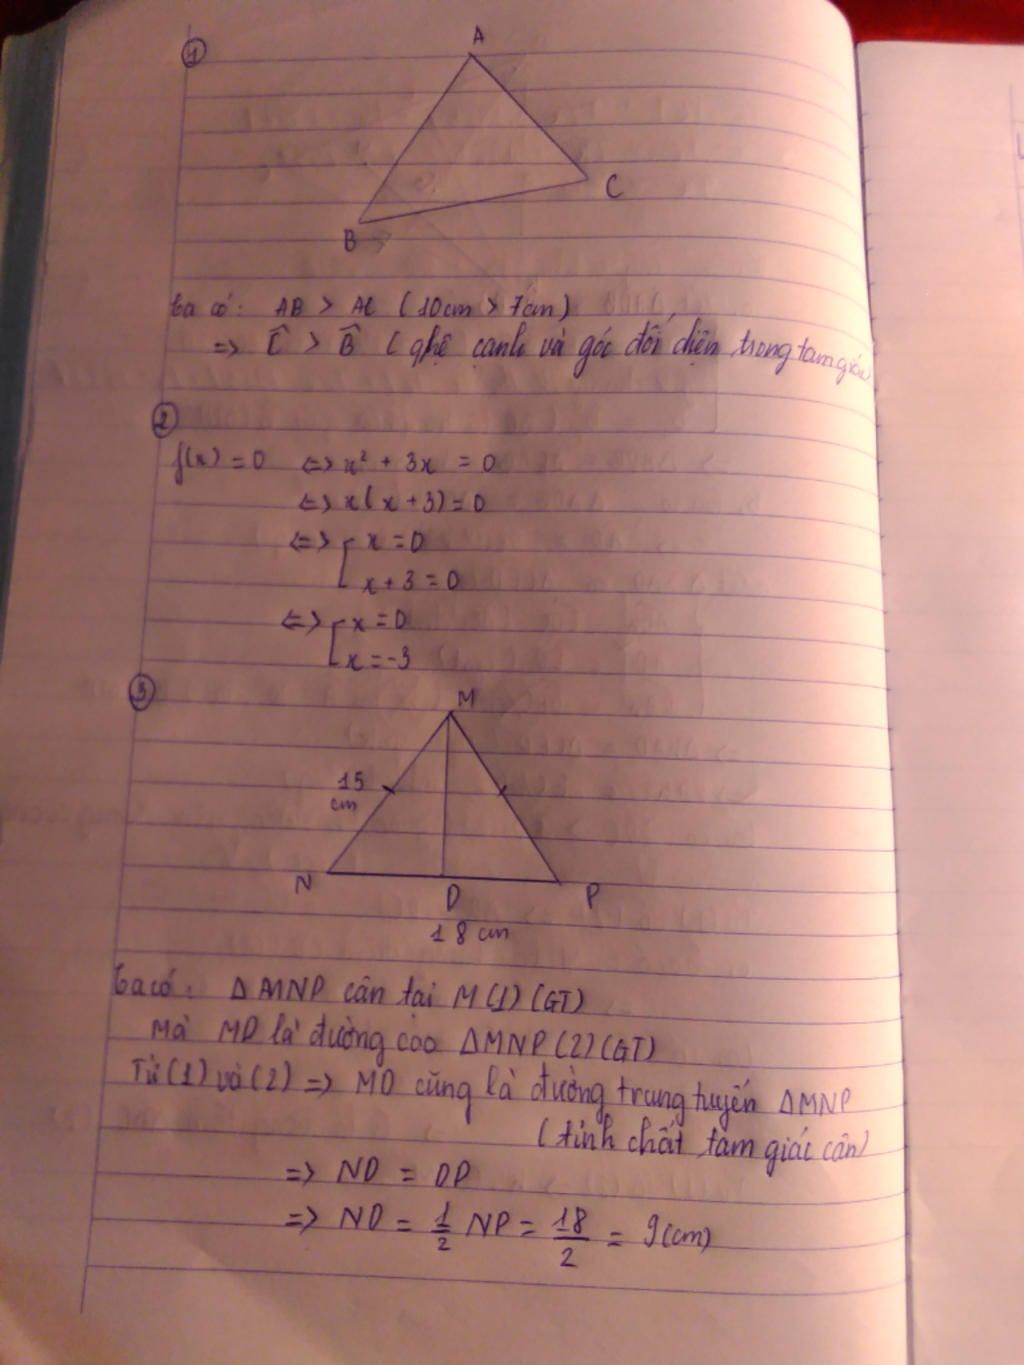 1
A
C
B
Ta có: AB > AC (10cm > 7cm)
=> Ĉ > B̂ (qhệ cạnh và góc đối diện trong tam giác)
2
f(x) = 0 <=> x² + 3x = 0
<=> x(x + 3) = 0
<=> [ x = 0
x + 3 = 0
<=> [ x = 0
x = -3
3
M
15
cm
N
D
P
18 cm
Ta có: ΔMNP cân tại M (1) (GT)
Mà MD là đường cao ΔMNP (2) (GT)
Từ (1) và (2) => MD cũng là đường trung tuyến ΔMNP
(tính chất tam giác cân)
=> ND = DP
=> ND = 1/2 NP = 18/2 = 9(cm)